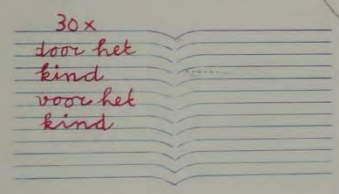 30 x
door het
kind
voor het
kind